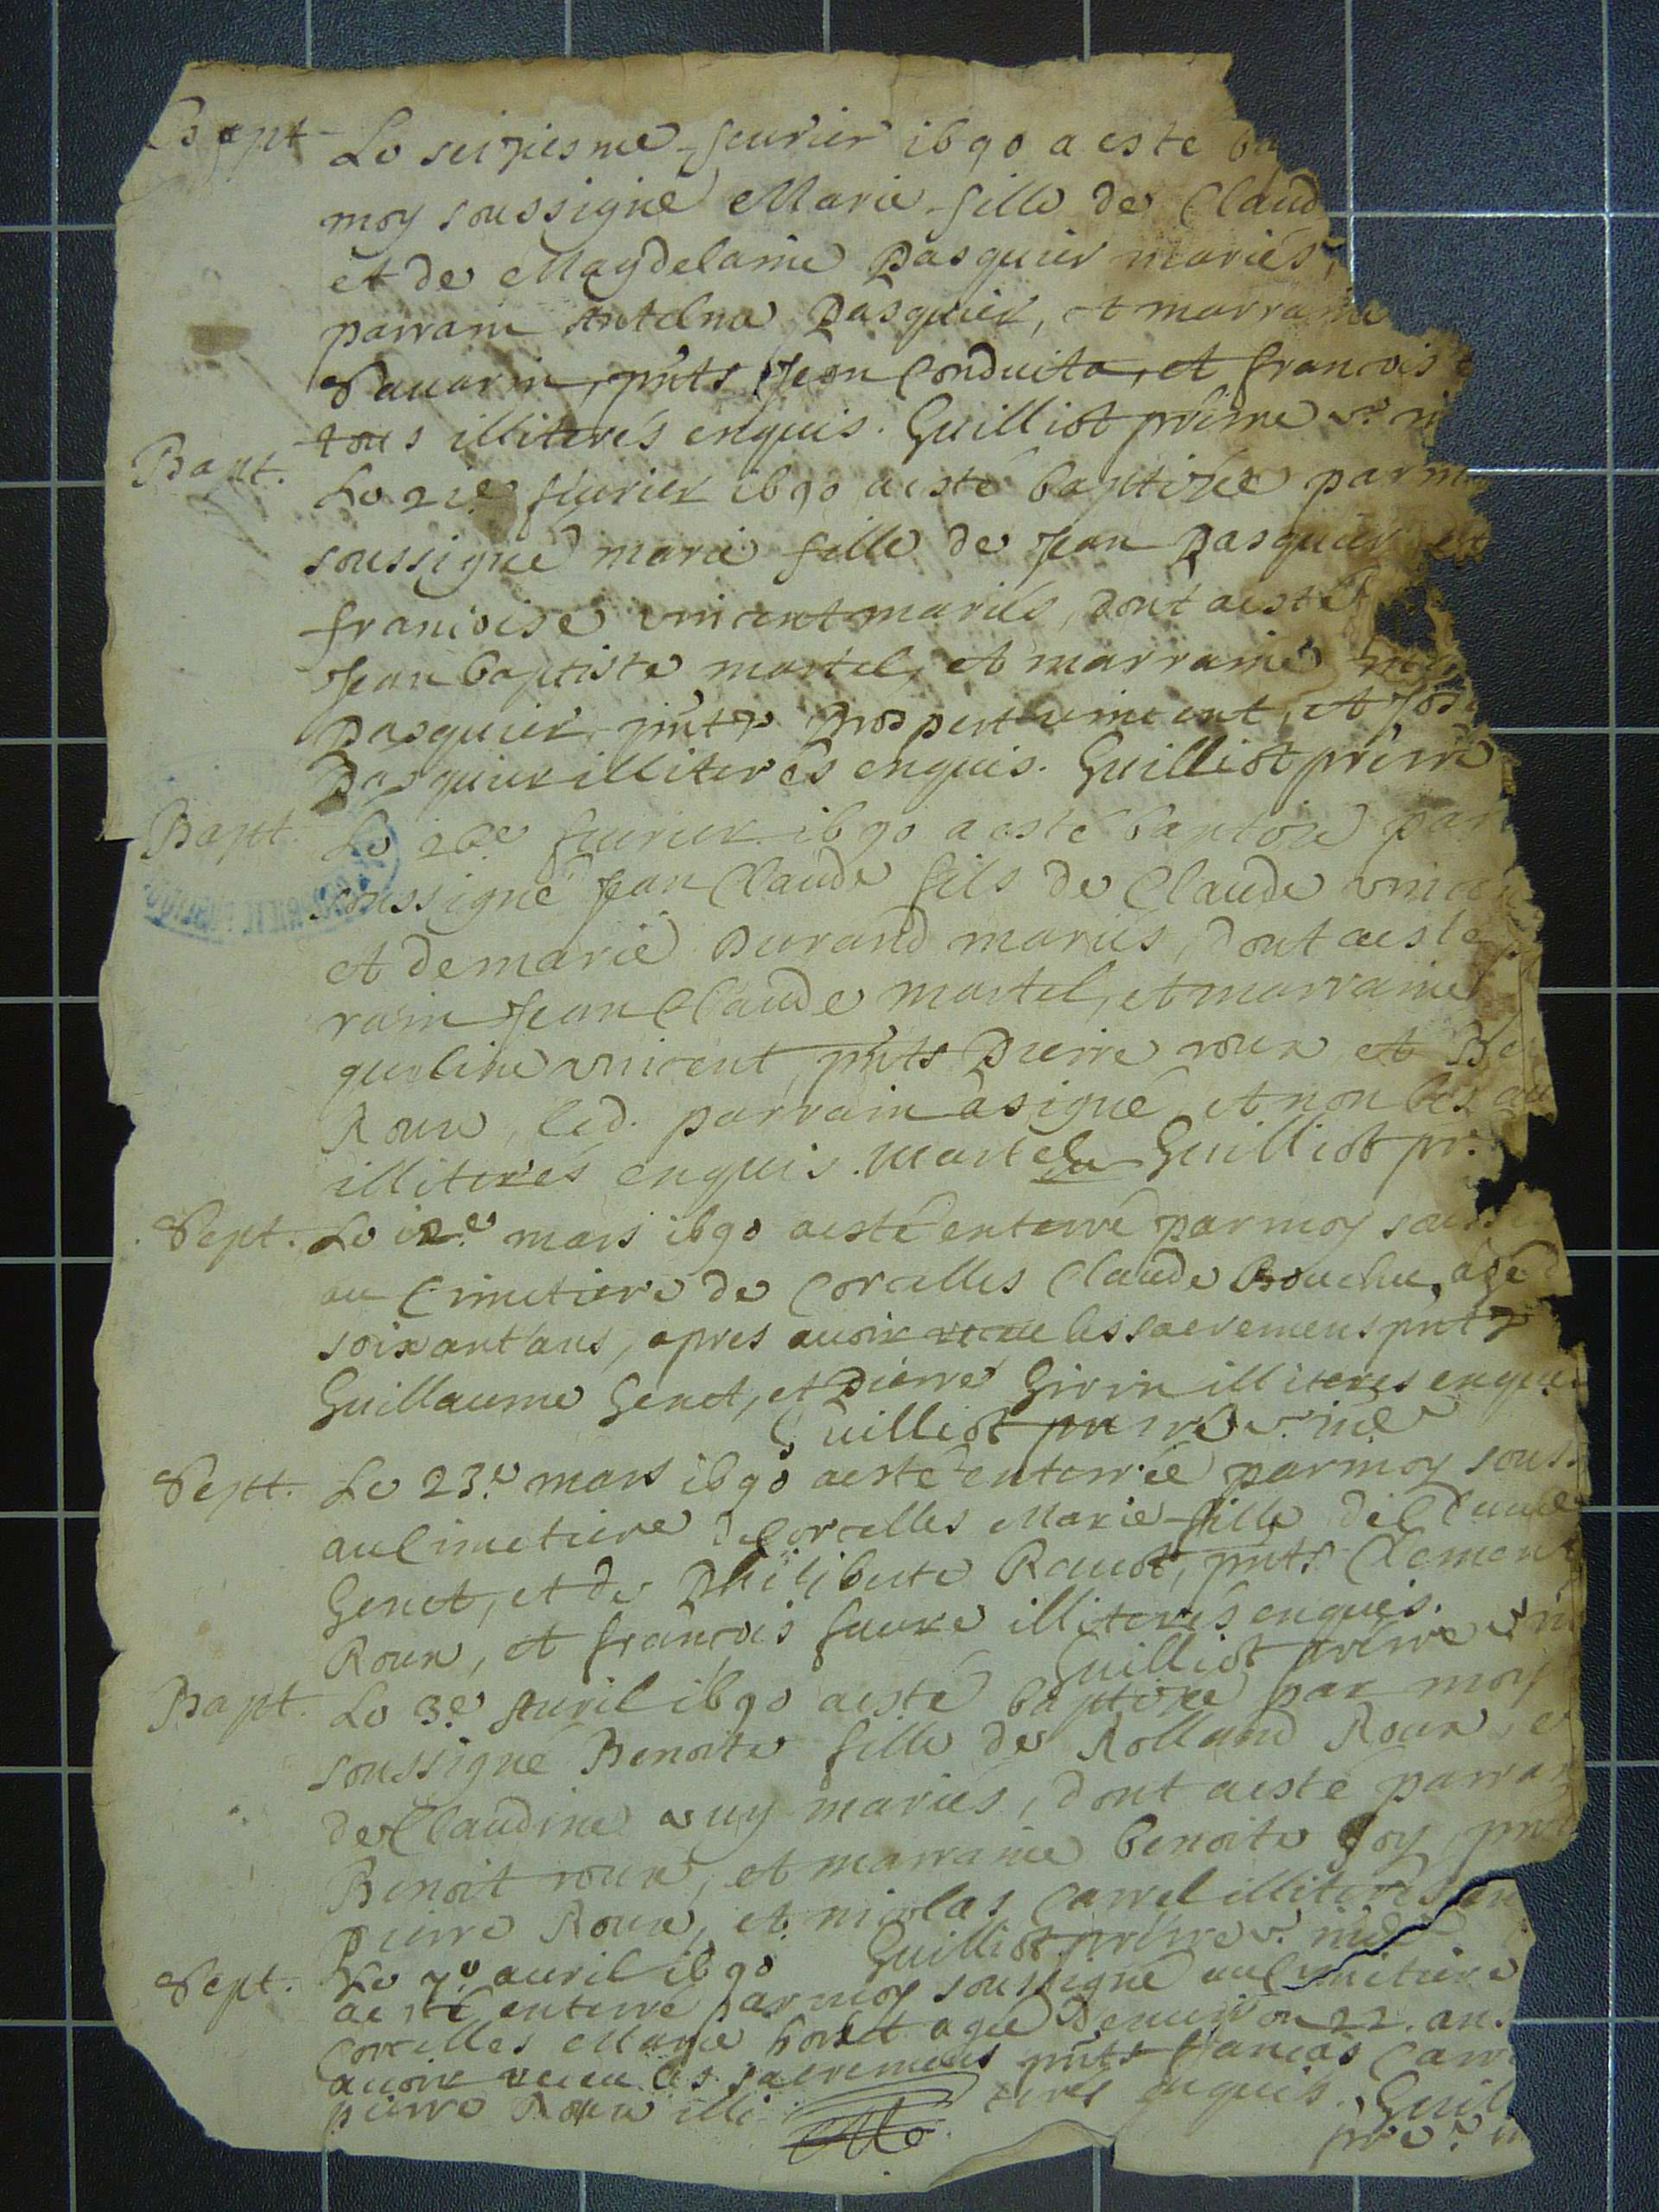 Bapt. Le seiziesme feurier 1690 a esté ba
moy soussigné Marie fille de Claud
et de Magdelaine Pasquier mariés,
parrain Antelme Pasquier, et marraine
Sauarin, pnts Jean Conduita, et francois
tous illiterés enquis. Guilliot prêtre v.re
Bapt. Le 21.e feurier 1690 a esté baptizée par m
soussigné marie fille de Jean Pasquier et
francoise vincent mariés, dont a esté
Jean baptiste martel, et marraine
Pasquier, pnts Prospert vincent, et Jos
Pasquier illiterés enquis. Guilliot prêtre
Bapt. Le 26.e feurier 1690 a esté baptizé par
soussigné Jean Claude fils de Claude vincen
et de marie Durand mariés, dont a esté p
rain Jean Claude martel, et marraine
queline vincent, pnts Pierre roux et Be
Roux, led. parrain a signé et non les au
illiterés enquis. Martel Guilliot pr.
Sept. Le 12.e mars 1690 a esté enterré par moy soussi
au Cimetiere de Corcelles Claude Bouchu, agé d
soixant'ans, apres auoir receu les sacremens pnts
Guillaume Genet, et Pierre Girin illiteres enqui
Guilliot prêtre v.re
Sept. Le 23.e mars 1690 a esté enterrée par moy souss
au Cimetiere de Corcelles Marie fille de Claude
Genet, et de Philiberte Rauot, pnts Clement
Roux, et francois faure illiterés enquis.
Guilliot prêtre v.re
Bapt. Le 3.e Auril 1690 a esté baptizée par moy
soussigné Benoite fille de Rolland Roux, e
de Claudine vuy mariés, dont a esté parrain
Benoit roux, et marraine benoite Joy, pnts
pierre Roux, et nicolas Carrel illiterés en
Guilliot prêtre v.re
Sept. Le 7.e auril 1690
a esté enterré par moy soussigné au Cimetiere
Corcelles Marie agé denuiron 22. ans
auoir receu les sacremens pnts francois Carr
pierre Roux illi terés enquis. Guil
pr. v.re